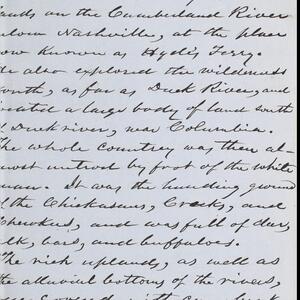 ands on the Cumberland River
elow Nashville, at the place
now Known as Hyde's Ferry.
e also explored the wilderness
outh, as far as Duck River, and
cated a large body of land south
f Duck river, near Columbia.
The whole country was then al-
most untrod by foot of the white
man. It was the hunting ground
f the Chickasaws, Creeks, and
herokees, and was full of deer,
elk, bears, and buffaloes.
The rich uplands, as well as
the alluvial bottoms of the rivers,
were covered with cane